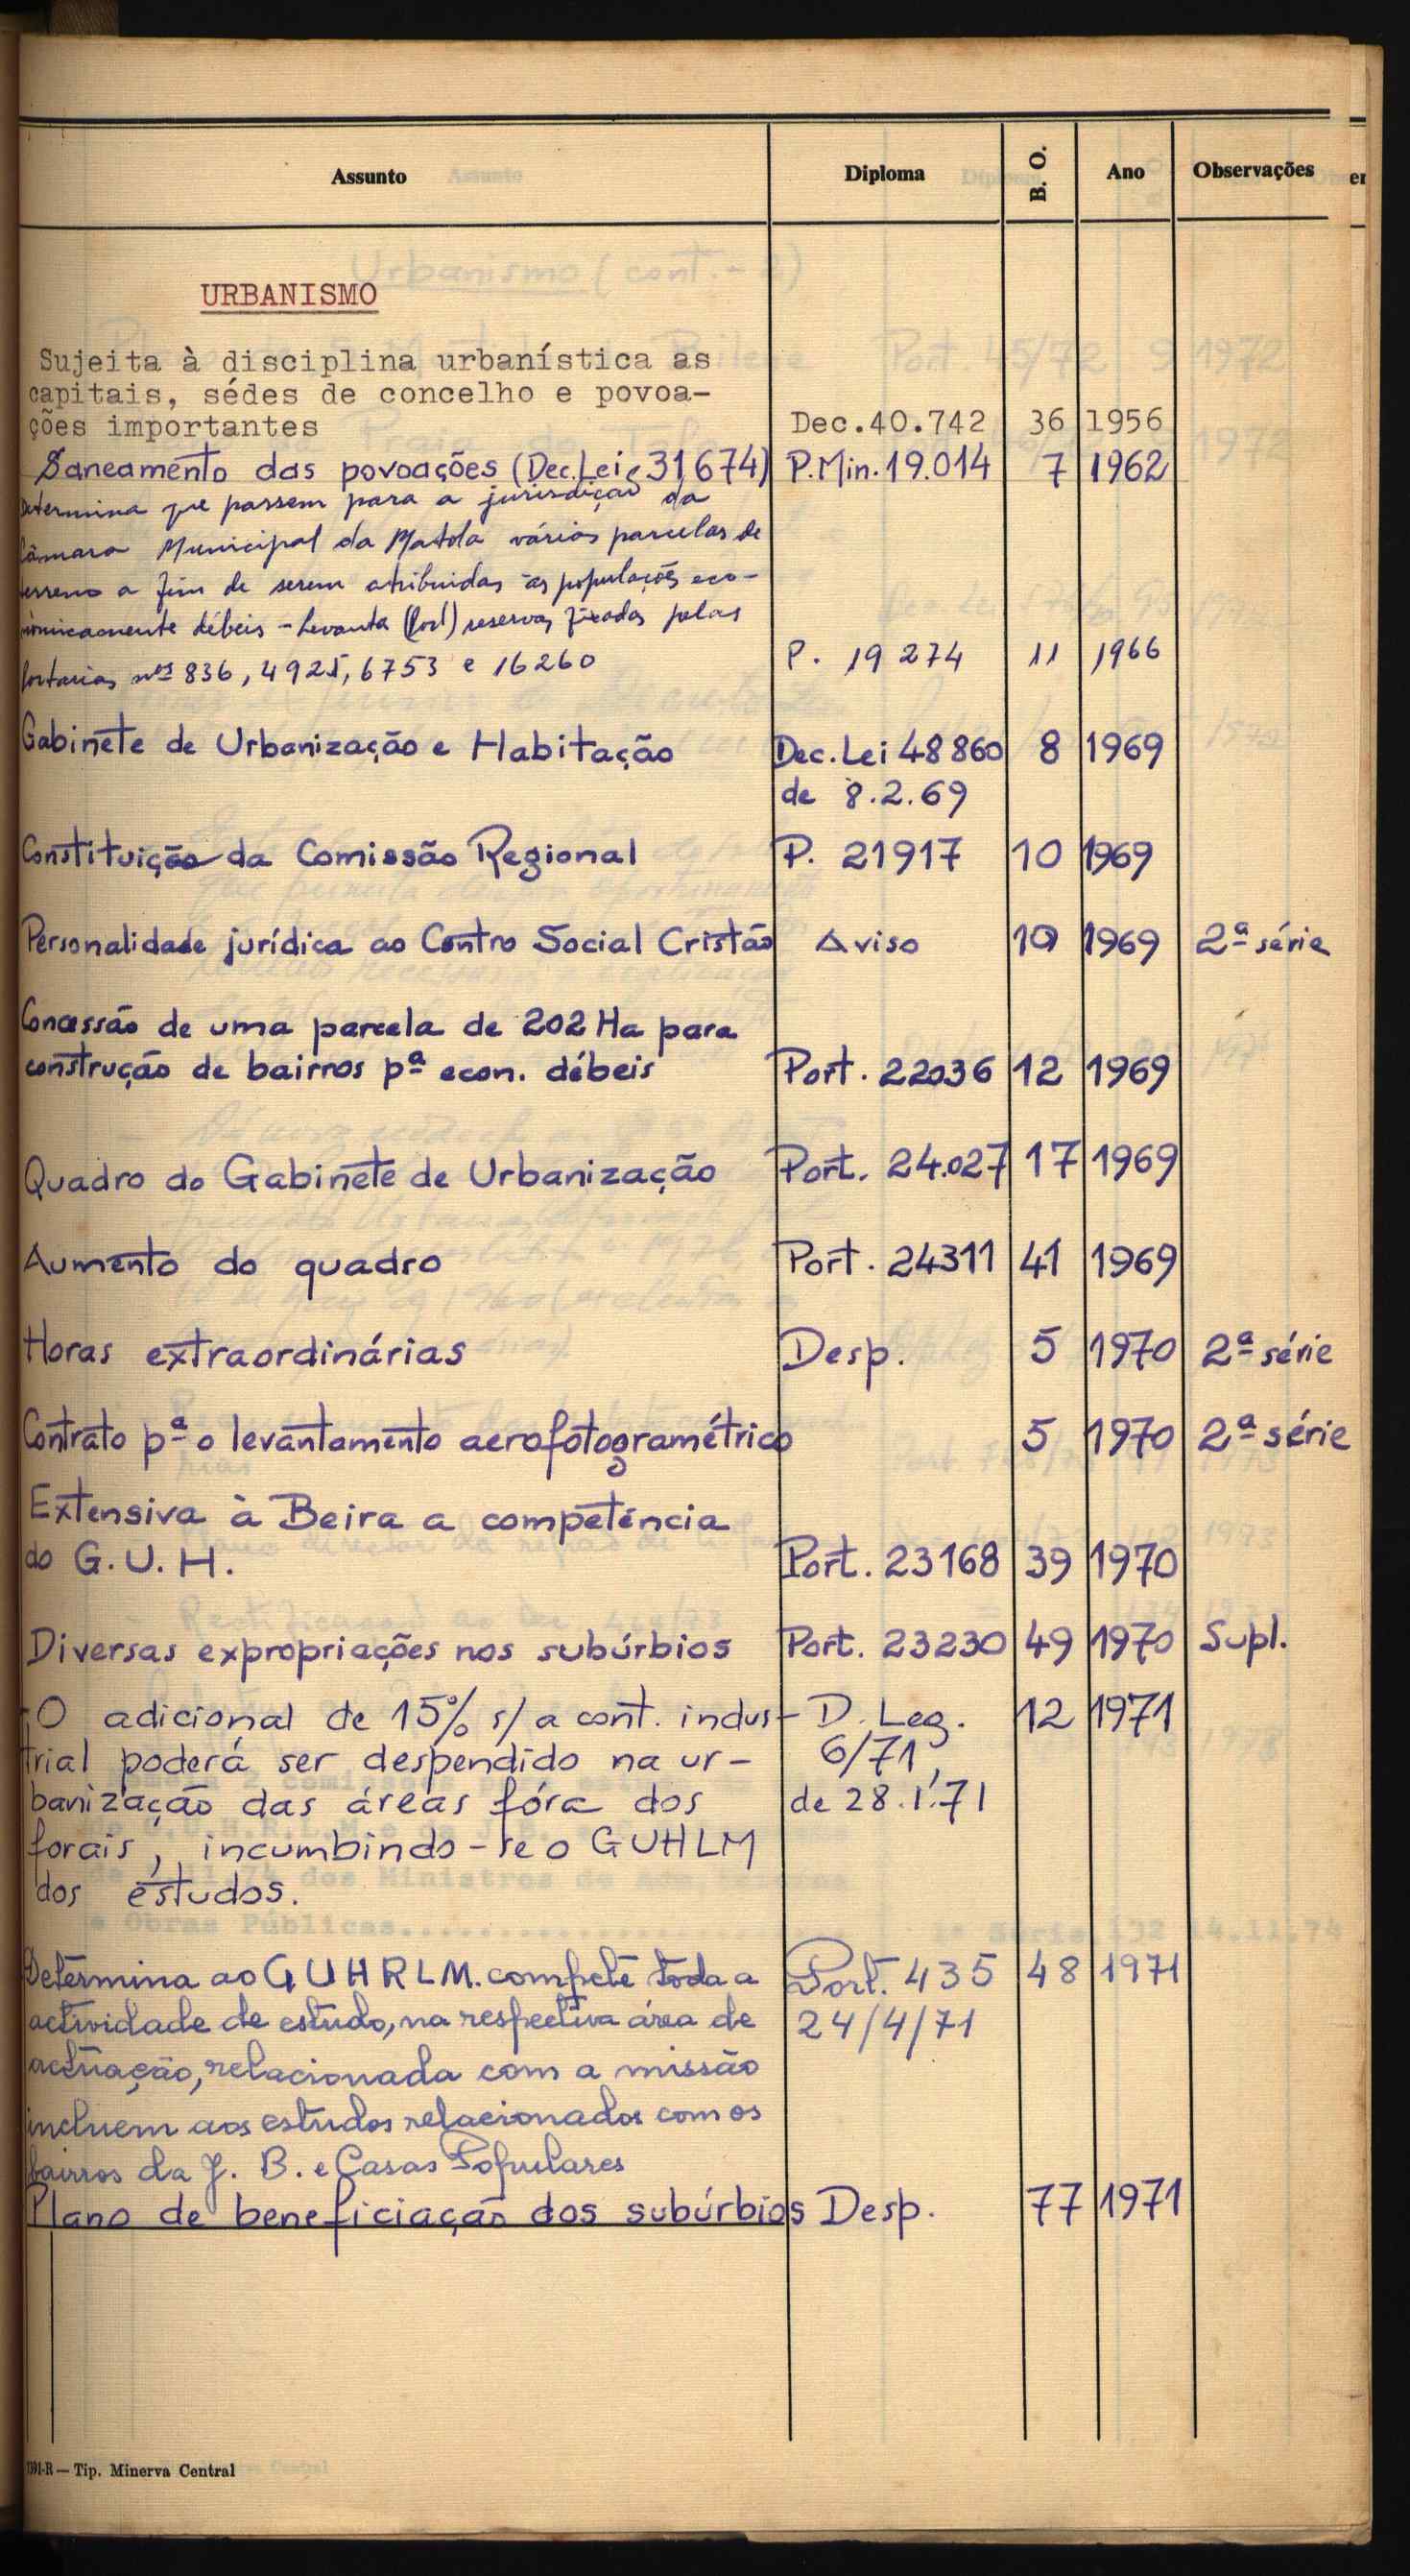 Assunto Diploma B. O. Ano Observações
URBANISMO
Sujeita à disciplina urbanística as
capitais, sédes de concelho e povoa-
ções importantes Dec.40.742 36 1956
Saneamento das povoações (Dec.Lei 31674) P.Min.19.014 7 1962
Determina que passem para a jurisdição da
Câmara Municipal da Matola várias parcelas de
terreno a fim de serem atribuidas às populações eco-
nómicamente débeis - Levanta reservas fixadas pelas
portarias nºs 836, 4925, 6753 e 16260 P. 19274 11 1966
Gabinete de Urbanização e Habitação Dec.Lei 48860 8 1969
de 8.2.69
Constituição da Comissão Regional P. 21917 10 1969
Personalidade jurídica ao Centro Social Cristão Aviso 10 1969 2ª série
Concessão de uma parcela de 202 Ha para
construção de bairros pª econ. débeis Port. 22036 12 1969
Quadro do Gabinete de Urbanização Port. 24.027 17 1969
Aumento do quadro Port. 24311 41 1969
Horas extraordinárias Desp. 5 1970 2ª série
Contrato pª o levantamento aerofotogramétrico 5 1970 2ª série
Extensiva à Beira a competência
do G.U.H. Port. 23168 39 1970
Diversas expropriações nos subúrbios Port. 23230 49 1970 Supl.
O adicional de 15% s/ a cont. indus- D. Leg. 12 1971
trial poderá ser despendido na ur- 6/71,
banização das áreas fóra dos de 28.1.71
forais, incumbindo-se o GUHLM
dos estudos.
Determina ao G U H R L M. compete toda a Port. 435 48 1971
actividade de estudo, na respectiva área de 24/4/71
actuação, relacionada com a missão
incluem aos estudos relacionados com os
bairros da J. B. e Casas Populares
Plano de beneficiação dos subúrbios Desp. 77 1971
Tip. Minerva Central